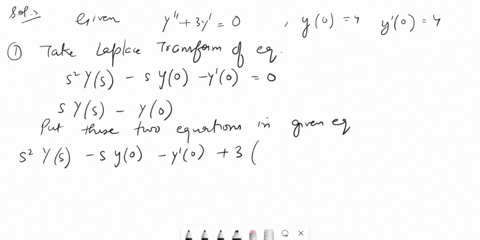 Sol.→ Given y'' + 3y' = 0 , y(0) = 4 y'(0) = 4
① Take Laplace Transform of eq.
s² Y(s) - s y(0) - y'(0) = 0
s Y(s) - y(0)
Put these two equations in given eq
s² Y(s) - s y(0) - y'(0) + 3 (